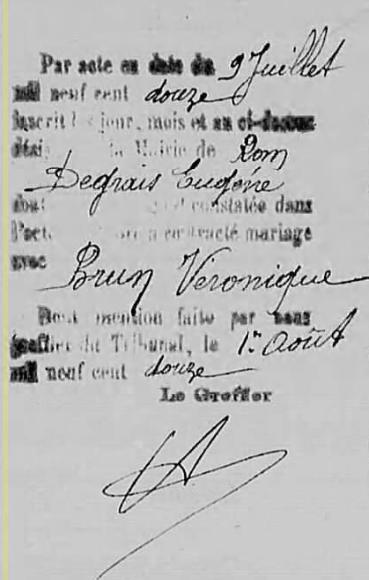 Par acte en date du 9 Juillet
mil neuf cent douze
inscrit les jour, mois et an ci-dessus
la Mairie de Rom
Degrais Eugène
dont constatée dans
l'acte a contracté mariage
avec
Brun Véronique
Dont mention faite par nous
greffier du Tribunal, le 1er Août
mil neuf cent douze
Le Greffier